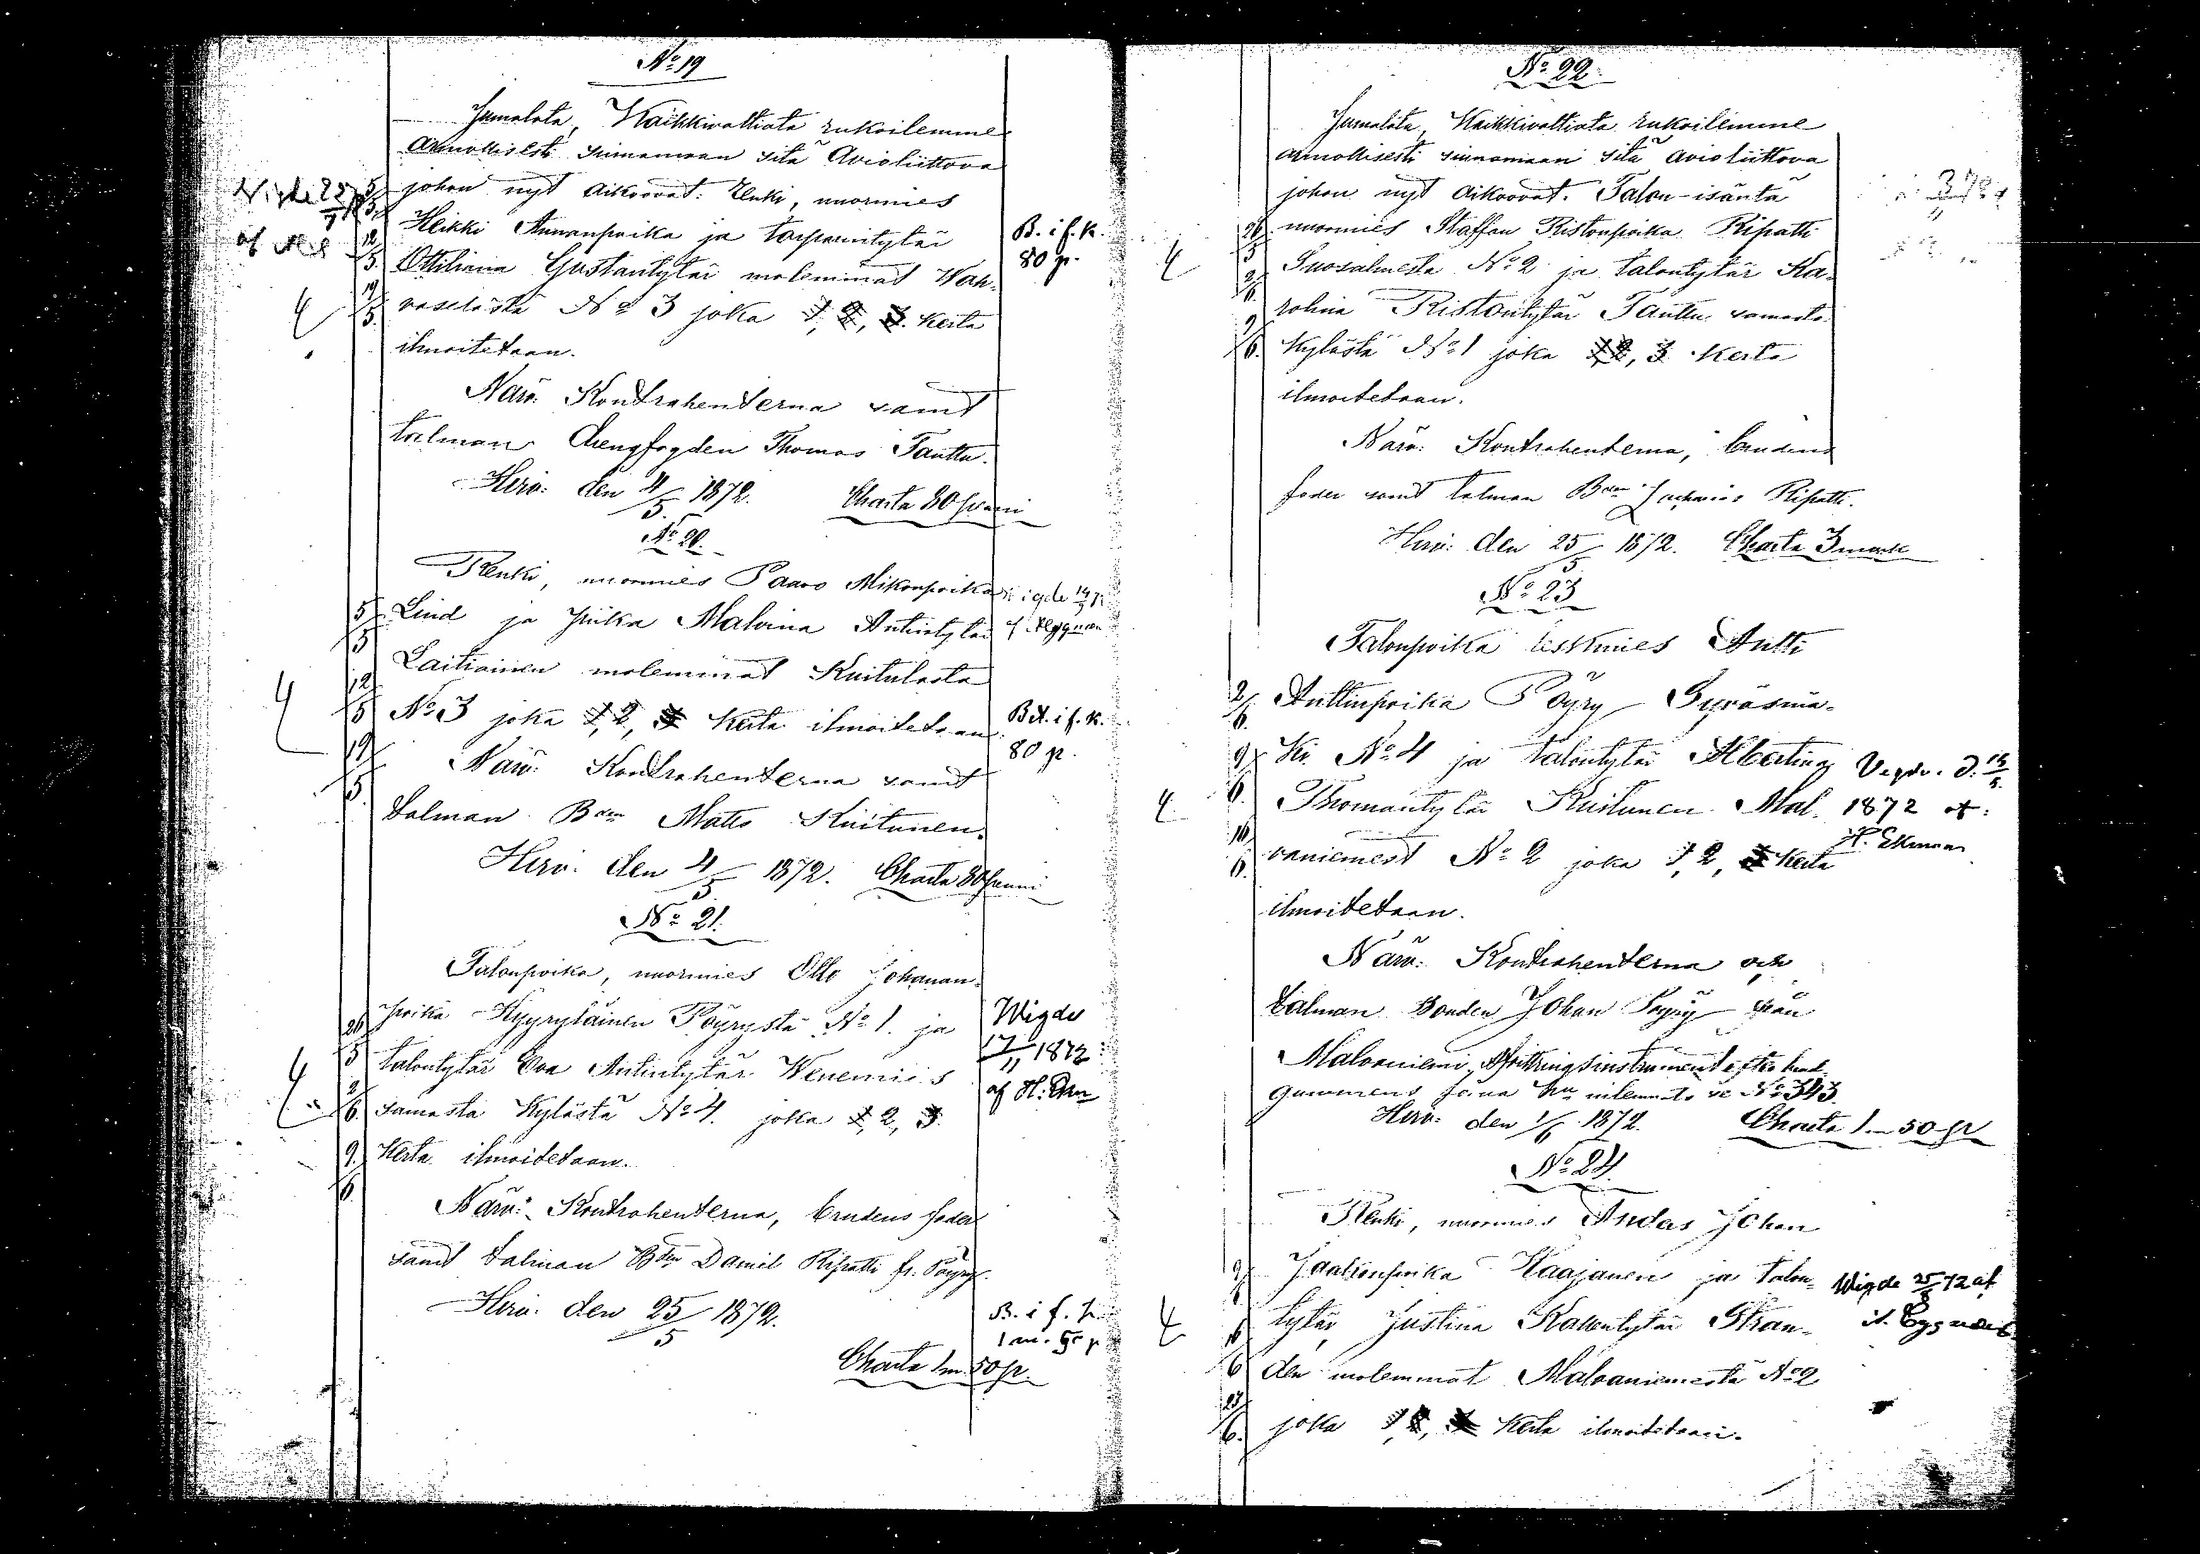 No 19
Jumalata, Kaikkivaltiata rukoilemme
armollisesti siunamaan sitä Avioliittova
johon nyt aikoovat: Renki, nuormies
Heikki Annanpoika ja torparintytär
Ottiliana Gustantytär molemmat War-
No 3 joka 1, 2, 3. kerta
ilmoitetaan.
B. i f. k.
80 p.
Närv. Kontrahenterna samt
talman Drengfogden Thomas Tanttu.
Hirv: den 4/5 1872.
Charta 80 penni
No 20.
Renki, nuormies Paavo Mikonpoika
Lind ja piika Malvina Antintytär
Laitiainen molemmat Kuitulasta
No 3 joka 1, 2, 3 kerta ilmoitetaan
Bet. i f. k.
80 p.
Närv: Kontrahenterna samt
talman Bden Matts Kuitunen.
Hirv: den 4/5 1872. Charta 80 penni
No 21.
Talonpoika, nuormies Otto Johanan-
poika Kyyryläinen Pöyrystä No 1. ja
talontytär Eva Antintytär
samasta kylästä No 4. joka 1, 2, 3.
kerta ilmoitetaan.
Wigde
17/11 1872
af H.
Närv: Kontrahenterna, brudens fader
samt talman Bden Daniel Ripatti fr. Pöyry.
Hirv: den 25/5 1872.
B. i f. k.
1 m. 50 p
Charta 1 m 50 p.
No 22.
Jumalata, Kaikkivaltiata rukoilemme
armollisesti siunamaan sitä avioliittova
johon nyt aikoovat. Talon-isäntä
nuormies Staffan Ristonpoika Ripatti
Suosalmesta No 2 ja talontytär Ka-
rolina Ristontytär Tanttu samasta
kylästä No 1 joka 1, 2, 3 kerta
ilmoitetaan.
Närv: Kontrahenterna, brudens
fader samt talman Bden Zacharias Ripatti.
Hirv: den 25/5 1872. Charta 3 mark
No 23
Talonpoika leskimies Antti
Antinpoika Pöyry Pyräsmä-
ki No 4 ja talontytär Albertina
Thomantytär Kuitunen Mal-
vaniemest No 2 joka 1, 2, 3 kerta
ilmoitetaan.
1872 af:
H. Ekman
Närv: Kontrahenterna och
talman Bonden Johan Pöyry från
Malvaniemi, Afvittringsinstrument efter brud-
gummens No 343.
Hirv: den 1/6 1872. Charta 1.-50 p
No 24.
Renki, nuormies Andas Johan
Jaakonpoika Haajanen ja talon-
tytär, Justina Kallentytär Stran-
den molemmat Malvaniemestä No 2
joka 1, 2, 3 kerta ilmoitetaan.
Wigde 25/8 72 af